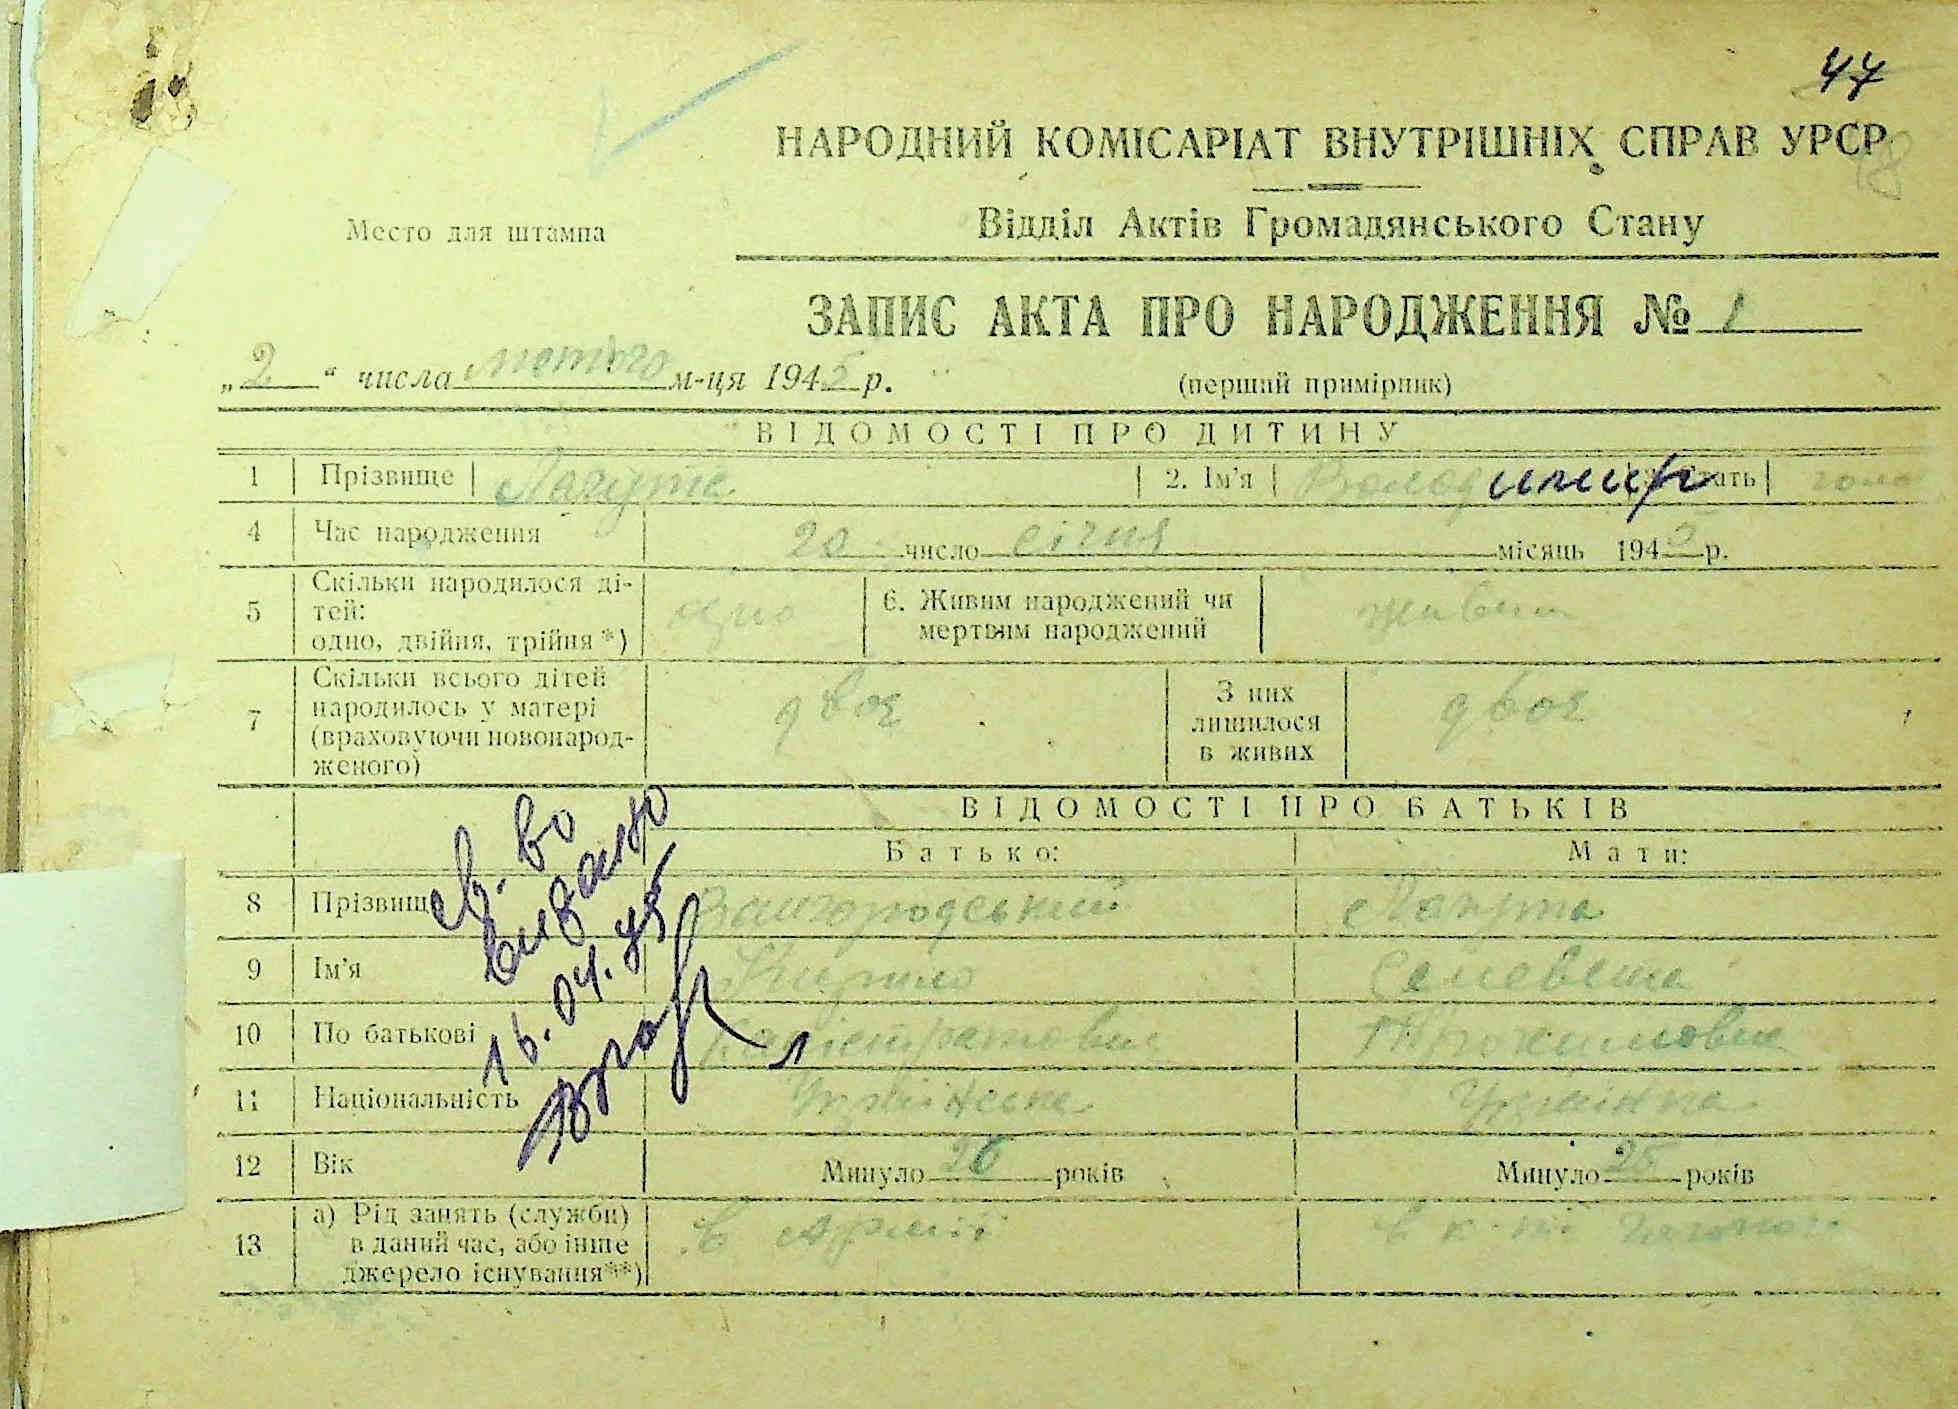 44
НАРОДНИЙ КОМІСАРІАТ ВНУТРІШНІХ СПРАВ УРСР
18
Место для штампа
Відділ Актів Громадянського Стану
ЗАПИС АКТА ПРО НАРОДЖЕННЯ № 1
„2“ числа лютого м-ця 1945 р. (перший примірник)
ВІДОМОСТІ ПРО ДИТИНУ
1 Прізвище 2. Ім'я Володимир ать
4 Час народження 20 число січня місяць 1945 р.
5 Скільки народилося ді-
тей:
одно, двійня, трійня *) одно 6. Живим народжений чи
мертвим народжений живим
7 Скільки всього дітей
народилось у матері
(враховуючи новонарод-
женого) двоє З них
лишилося
в живих двоє
ВІДОМОСТІ ПРО БАТЬКІВ
Батько: Мати:
8 Прізвище
9 Ім'я Кирило
10 По батькові
11 Національність Українка
12 Вік Минуло 26 років Минуло 25 років
13 а) Рід занять (служби)
в даний час, або інше
джерело існування**) в Армії
св-во
видано
16.04.45